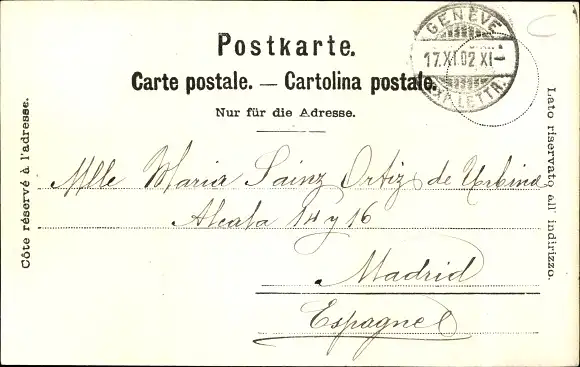 Postkarte.
Carte postale. — Cartolina postale.
Nur für die Adresse.
GENÈVE
17.XI.02 XI-
LETTR.
Côte réservé à l'adresse.
Lato riservato all' indirizzo.
Mlle Maria Sainz Ortiz de Urbina
Alcala 14 y 16
Madrid
Espagne